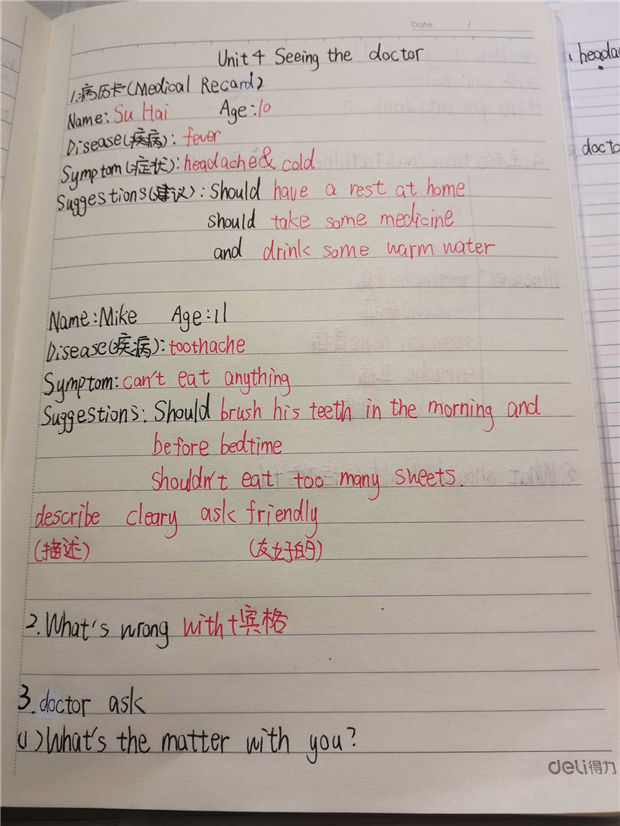 Date.    /
Unit 4 Seeing the doctor
1.病历卡(Medical Recard)
Name: Su Hai    Age: 10
Disease(疾病): fever
Symptom(症状): headache & cold
Suggestions(建议): Should have a rest at home
should take some medicine
and drink some warm water
Name: Mike    Age: 11
Disease(疾病): toothache
Symptom: can't eat anything
Suggestions: Should brush his teeth in the morning and
before bedtime
Shouldn't eat too many sheets.
describe cleary ask friendly
(描述)    (友好的)
2.What's wrong with+宾格
3.doctor ask
(1)What's the matter with you?
deli得力
heada
docto